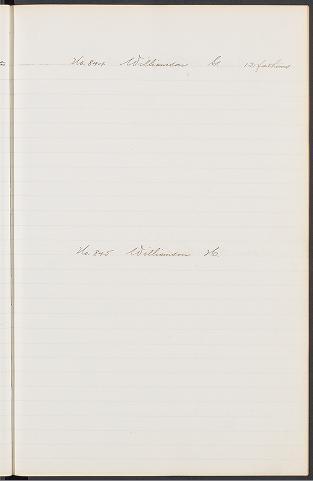 No. 844 Williamson G. 12 fathoms
No. 845 Williamson H.